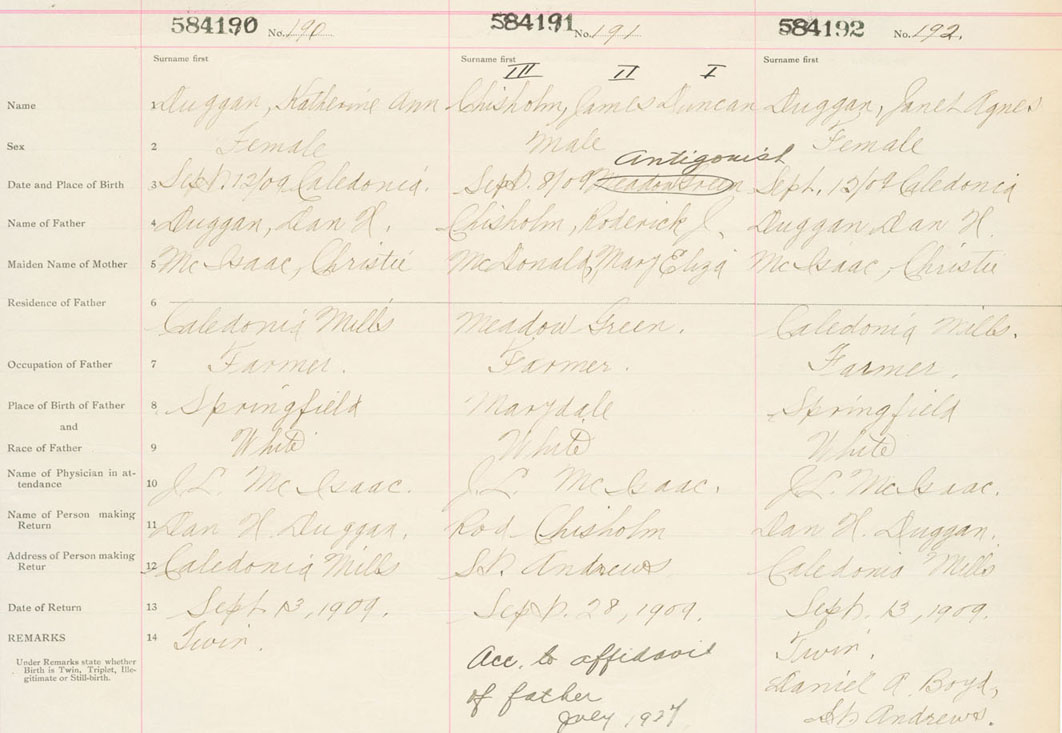 584190 No. 190 584191 No. 191 584192 No. 192.
Surname first Surname first Surname first
III II I
Name 1 Duggan, Katherine Ann Chisholm, James Duncan Duggan, Janet Agnes
Sex 2 Female Male Female
Antigonish
Date and Place of Birth 3 Sept. 12/09 Caledonia. Sept. 8/09 Meadow Green Sept. 12/09 Caledonia
Name of Father 4 Duggan, Dan H. Chisholm, Roderick J. Duggan Dan H.
Maiden Name of Mother 5 Mc Isaac, Christie McDonald, Mary Eliza Mc Isaac, Christie
Residence of Father 6
Caledonia Mills Meadow Green. Caledonia Mills.
Occupation of Father 7 Farmer. Farmer. Farmer.
Place of Birth of Father 8 Springfield Marydale Springfield
and
Race of Father 9 White White White
Name of Physician in at-
tendance 10 J.L. McIsaac. J.L. McIsaac. J.L. McIsaac.
Name of Person making
Return 11 Dan H. Duggan. Rod Chisholm Dan H. Duggan.
Address of Person making
Retur 12 Caledonia Mills St. Andrews Caledonia Mills
Date of Return 13 Sept. 13, 1909. Sept. 28, 1909. Sept. 13, 1909.
REMARKS 14 Twin. Twin.
Under Remarks state whether
Birth is Twin, Triplet, Ille-
gitimate or Still-birth.
Acc. to affidavit
of father
July 1937
Daniel A. Boyd,
St. Andrews.